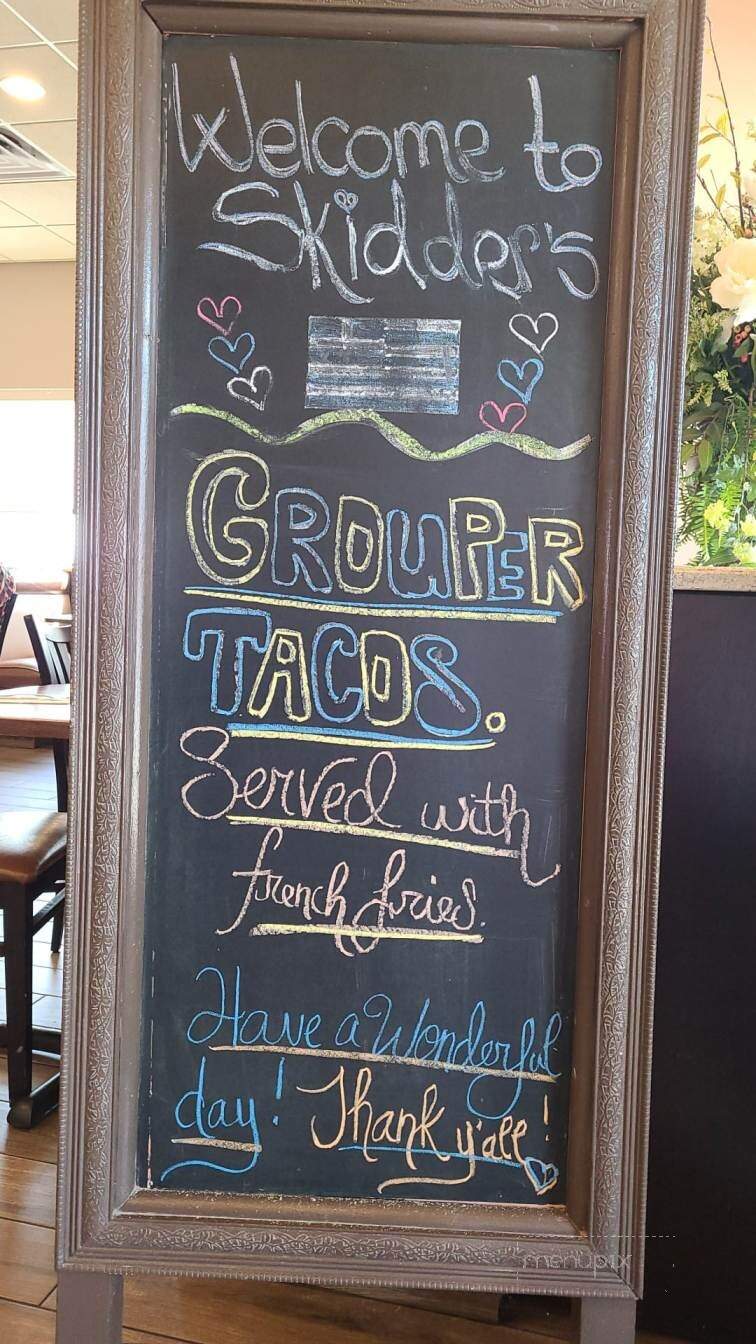 Welcome to
Skidder's
GROUPER
TACOS.
Served with
french fries.
Have a Wonderful
day! Thank y'all!
menupix